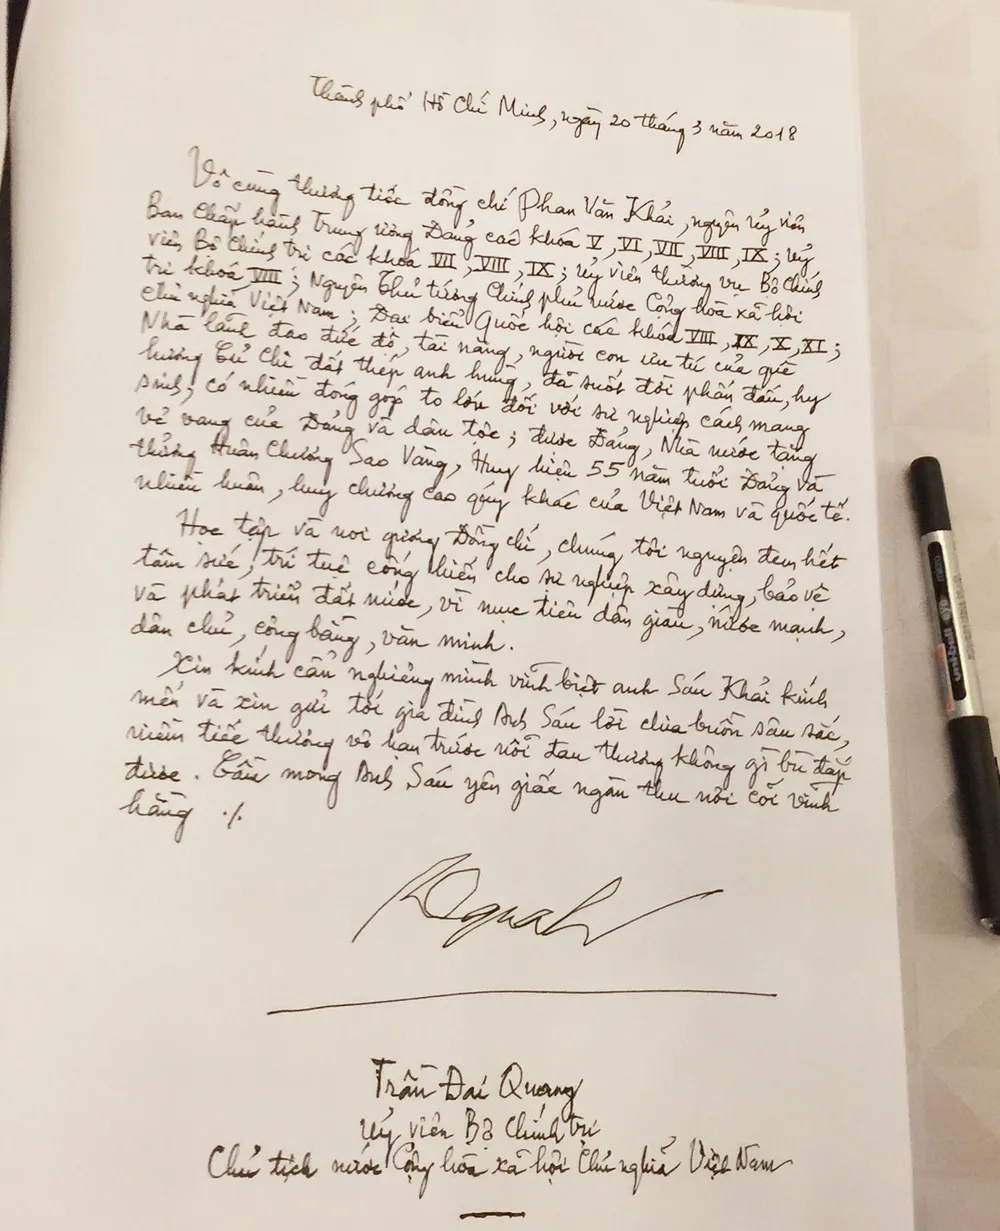 Thành phố Hồ Chí Minh, ngày 20 tháng 3 năm 2018
Vô cùng thương tiếc đồng chí Phan Văn Khải, nguyên Uỷ viên
Ban Chấp hành Trung ương Đảng các khoá V, VI, VII, VIII, IX; Uỷ
viên Bộ Chính trị các khoá VII, VIII, IX; Uỷ viên thường vụ Bộ Chính
trị khoá VIII; Nguyên Thủ tướng Chính phủ nước Cộng hoà xã hội
chủ nghĩa Việt Nam; Đại biểu Quốc hội các khoá VIII, IX, X, XI;
Nhà lãnh đạo đức độ, tài năng, người con ưu tú của quê
hương Củ Chi đất thép anh hùng, đã suốt đời phấn đấu, hy
sinh, có nhiều đóng góp to lớn đối với sự nghiệp cách mạng
vẻ vang của Đảng và dân tộc; được Đảng, Nhà nước tặng
thưởng Huân Chương Sao Vàng, Huy hiệu 55 năm tuổi Đảng và
nhiều huân, huy chương cao qúy khác của Việt Nam và quốc tế.
Học tập và noi gương Đồng chí, chúng tôi nguyện đem hết
tâm sức, trí tuệ cống hiến cho sự nghiệp xây dựng, bảo vệ
và phát triển đất nước, vì mục tiêu dân giàu, nước mạnh,
dân chủ, công bằng, văn minh.
Xin kính cẩn nghiêng mình vĩnh biệt anh Sáu Khải kính
mến và xin gửi tới gia đình Anh Sáu lời chia buồn sâu sắc,
niềm tiếc thương vô hạn trước nỗi đau thương không gì bù đắp
được. Cầu mong Anh Sáu yên giấc ngàn thu nơi cõi vĩnh
hằng ./.
Trần Đại Quang
Uỷ viên Bộ Chính trị
Chủ tịch nước Cộng hoà xã hội Chủ nghĩa Việt Nam
uniball